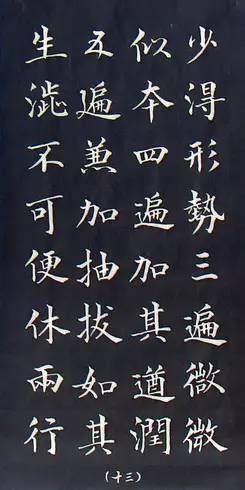 少得形勢三遍微微
似本四遍加其遒潤
五遍兼加抽拔如其
生澁不可便休兩行
（十三）